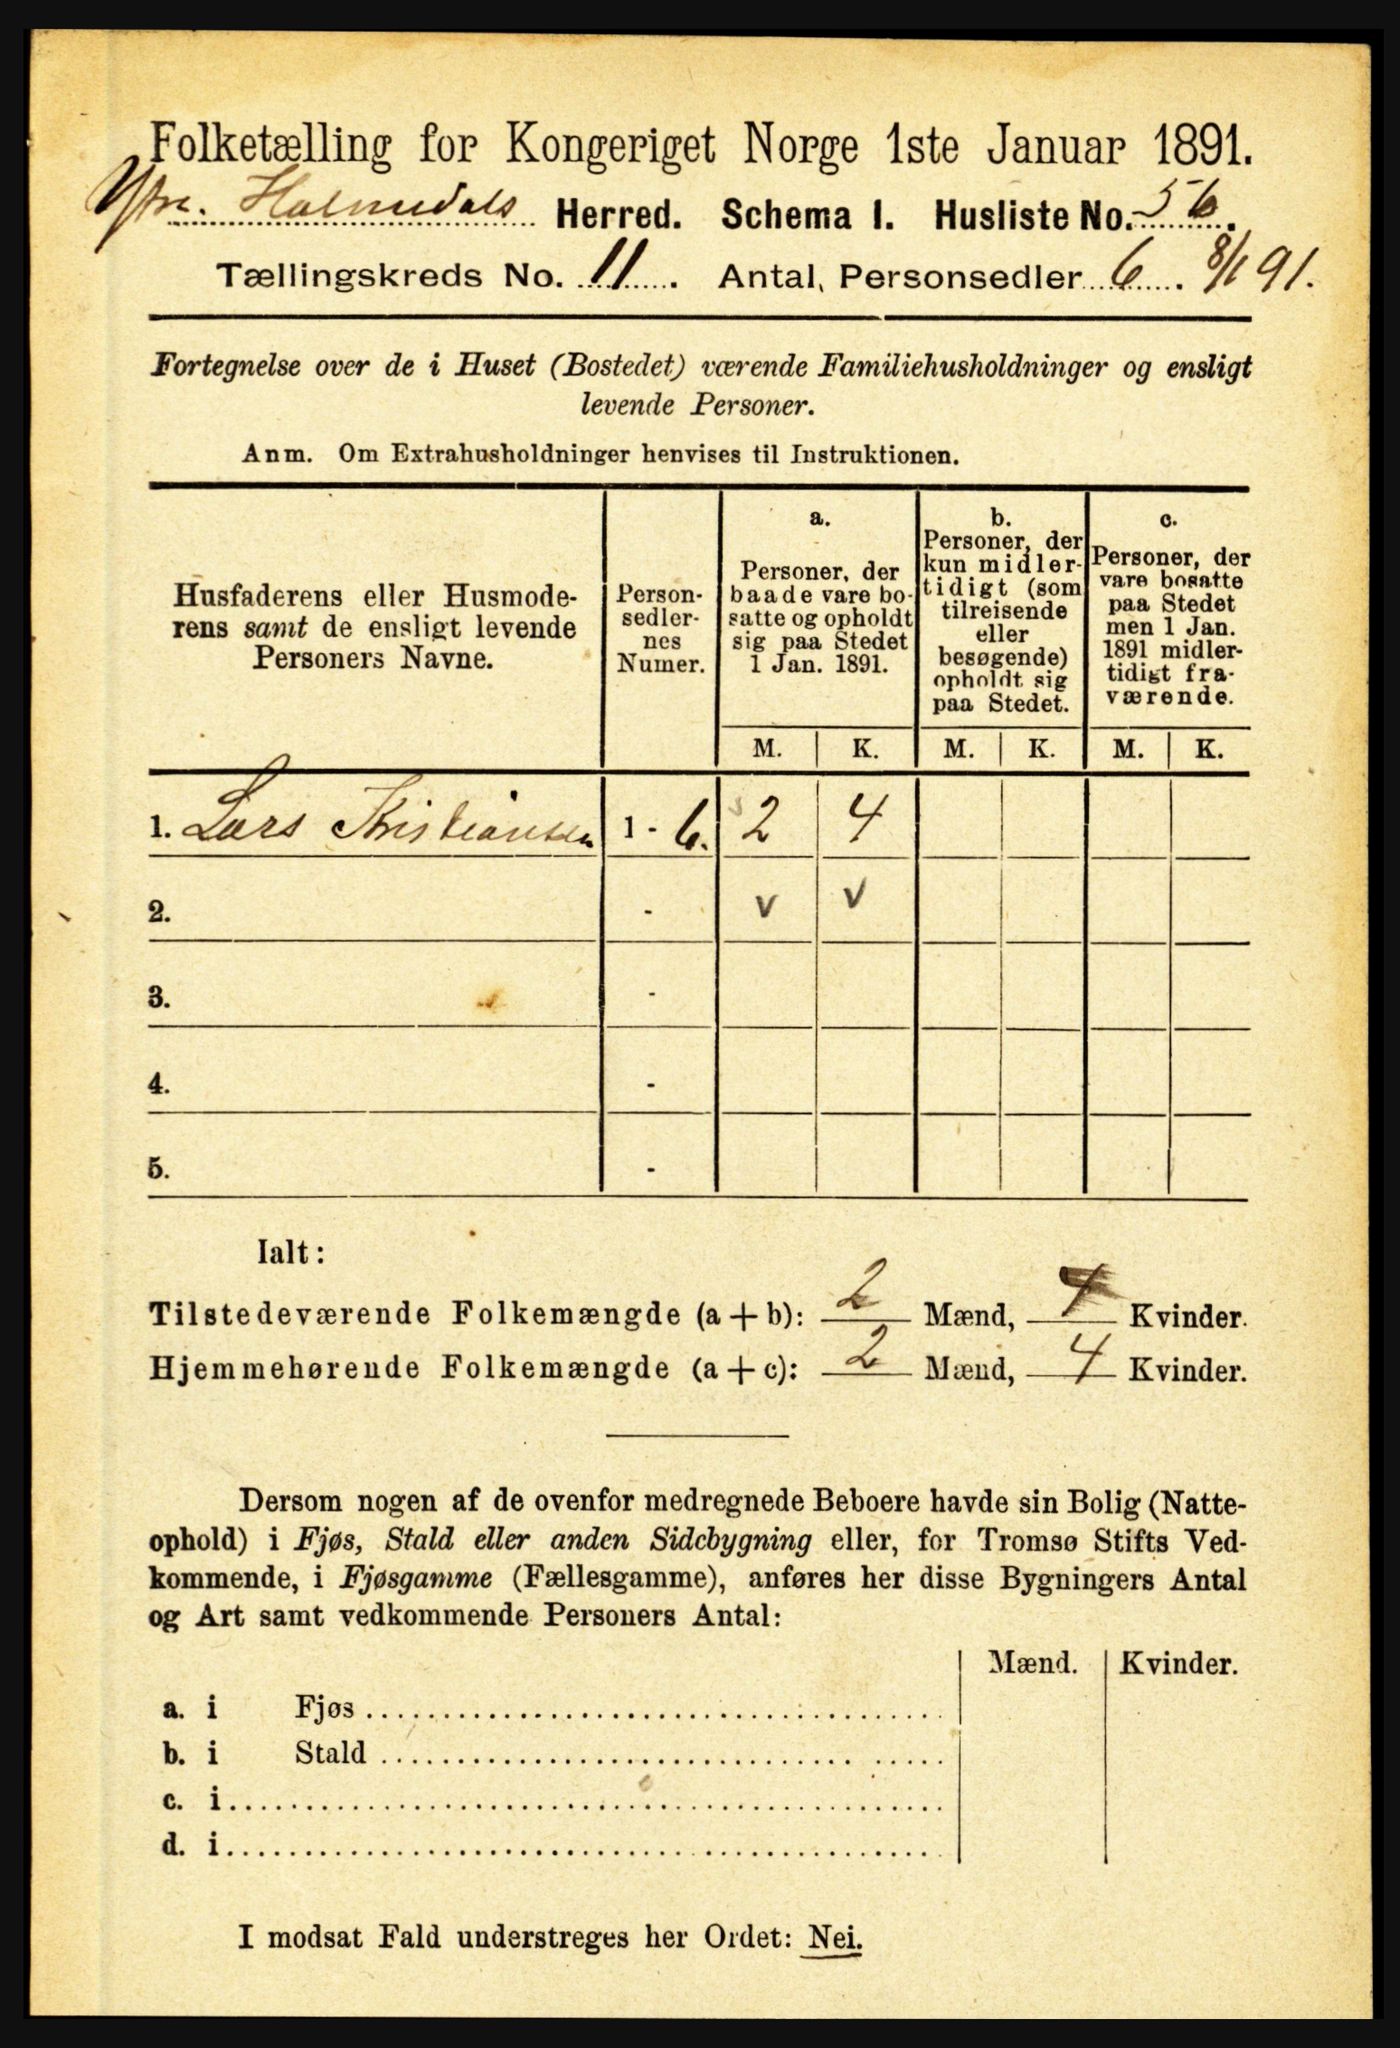 Folketælling for Kongeriget Norge 1ste Januar 1891.
Ytre Holmedals Herred. Schema I. Husliste No. 56.
Tællingskreds No. 11. Antal Personsedler 6. 8/1 91.
Fortegnelse over de i Huset (Bostedet) værende Familiehusholdninger og ensligt
levende Personer.
Anm. Om Extrahusholdninger henvises til Instruktionen.
Husfaderens eller Husmode-
rens samt de ensligt levende
Personers Navne.
Person-
sedler-
nes
Numer.
a.
Personer, der
baade vare bo-
satte og opholdt
sig paa Stedet
1 Jan. 1891.
b.
Personer, der
kun midler-
tidigt (som
tilreisende
eller
besøgende)
opholdt sig
paa Stedet.
c.
Personer, der
vare bosatte
paa Stedet
men 1 Jan.
1891 midler-
tidigt fra-
værende.
M. K. M. K. M. K.
1. Lars Kristiansen 1 - 6. 2 4
2. - v v
3. -
4. -
5. -
Ialt:
Tilstedeværende Folkemængde (a + b): 2 Mænd, 4 Kvinder.
Hjemmehørende Folkemængde (a + c): 2 Mænd, 4 Kvinder.
Dersom nogen af de ovenfor medregnede Beboere havde sin Bolig (Natte-
ophold) i Fjøs, Stald eller anden Sidebygning eller, for Tromsø Stifts Ved-
kommende, i Fjøsgamme (Fællesgamme), anføres her disse Bygningers Antal
og Art samt vedkommende Personers Antal:
Mænd. Kvinder.
a. i Fjøs
b. i Stald
c. i
d. i
I modsat Fald understreges her Ordet: Nei.